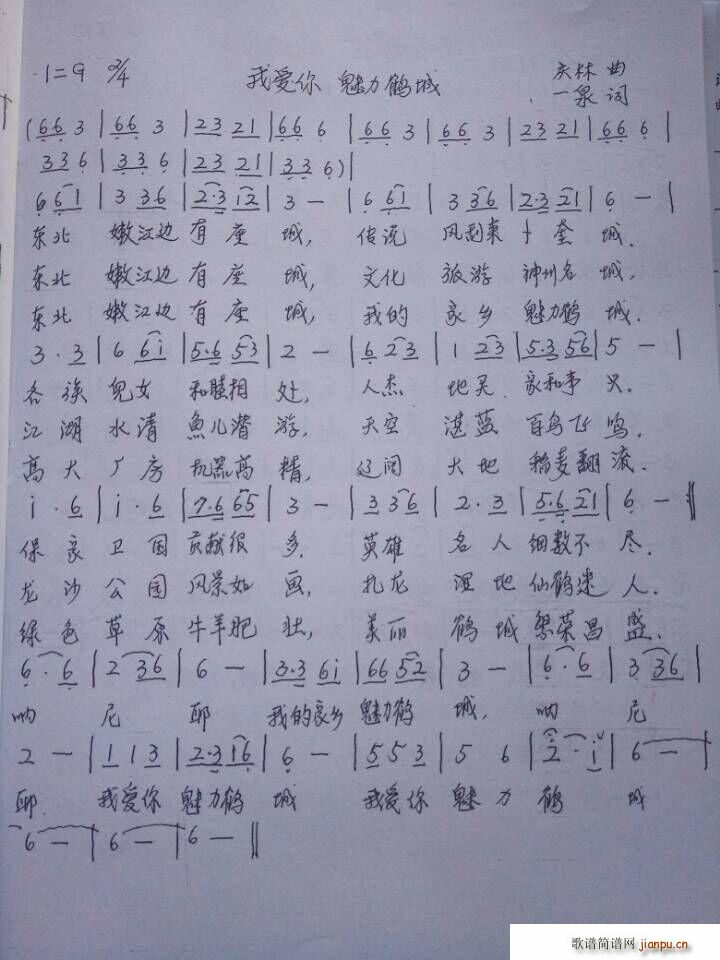 1=G 2/4 我爱你 魅力鹤城 庆林 曲
一泉 词
(6 6 3 | 6 6 3 | 2 3 2 1 | 6 6 6 | 6 6 3 | 6 6 3 | 2 3 2 1 | 6 6 6 |
3 3 6 | 3 3 6 | 2 3 2 1 | 3 3 6) |
6 6 1 | 3 3 6 | 2·3 1 2 | 3 — | 6 6 1 | 3 3 6 | 2·3 2 1 | 6 — |
东北 嫩江边 有 座 城, 传说 风刮来 卜奎 城.
东北 嫩江边 有 座 城, 文化 旅游 神州名 城,
东北 嫩江边 有 座 城, 我的 家乡 魅力鹤 城.
3·3 | 6 6 i | 5·6 5 3 | 2 — | 6 2 3 | 1 2 3 | 5·3 5 6 | 5 — |
各族 儿女 和睦相 处, 人杰 地灵 家和事 兴.
江湖 水清 魚儿潜 游, 天空 湛蓝 百鸟飞 鸣,
高大 厂房 机器高 精, 辽阔 大地 稻麦翻 浪.
i·6 | i·6 | 7·6 6 5 | 3 — | 3 3 6 | 2·3 | 5·6 2 1 | 6 — ‖
保家 卫国 贡献很 多, 英雄 名人 细数不 尽.
龙沙 公园 风景如 画, 扎龙 湿地 仙鹤迷 人.
绿色 草原 牛羊肥 壮, 美丽 鹤城 繁荣昌 盛.
6·6 | 2 3 6 | 6 — | 3·3 6 i | 6 6 5 2 | 3 — | 6·6 | 3 3 6 |
呐 尼 耶 我的家乡 魅力鹤 城, 呐 尼
2 — | 1 1 3 | 2·3 1 6 | 6 — | 5 5 3 | 5 6 | 2·i | 6 — |
耶. 我爱你 魅力鹤 城 我爱你 魅力 鹤 城
6 — | 6 — | 6 — ‖
歌谱简谱网 jianpu.cn